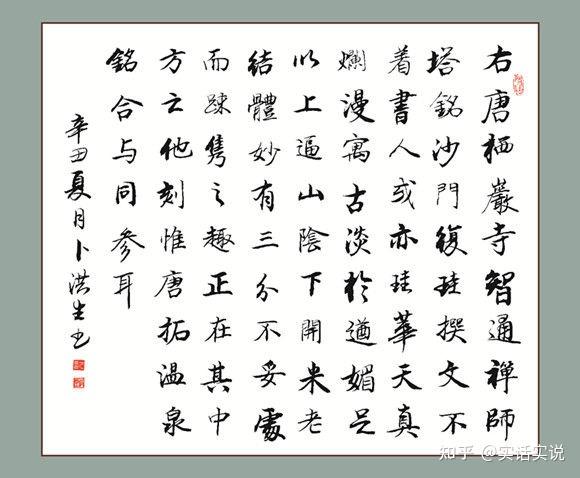 右唐栖巖寺智通禪師
塔銘沙門復珪撰文不
着書人或亦珪華天真
爛漫寓古淡於遒媚足
以上逼山陰下開米老
結體妙有三分不妥處
而踈雋之趣正在其中
方之他刻惟唐拓温泉
銘合与同參耳
辛丑夏月卜洪生书
知乎 @实话实说